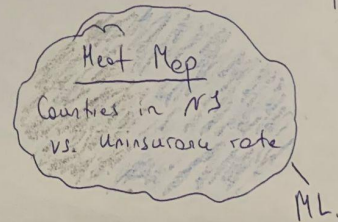 Heat Map
Counties in NJ
vs. Uninsurance rate
ML.